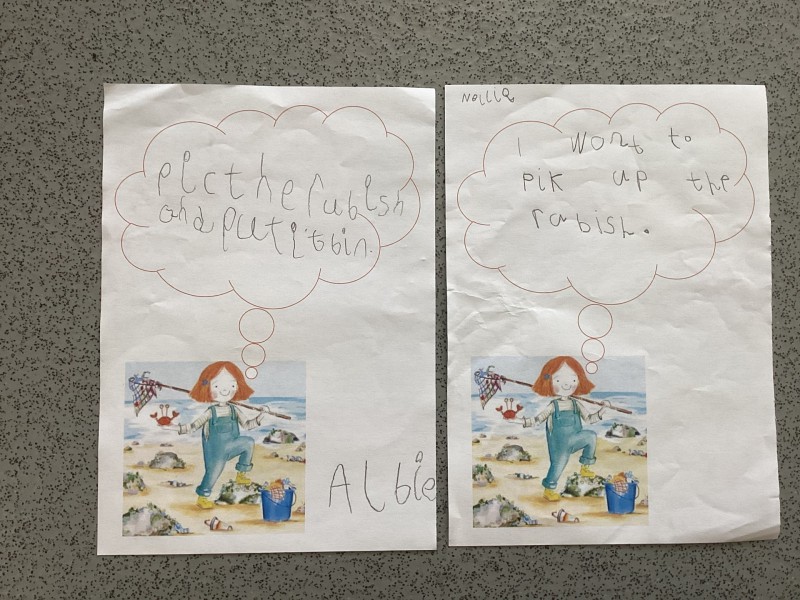 pictherubish
and putitbin.
Albie
Nellie
I wont to
pik up the
rabish.